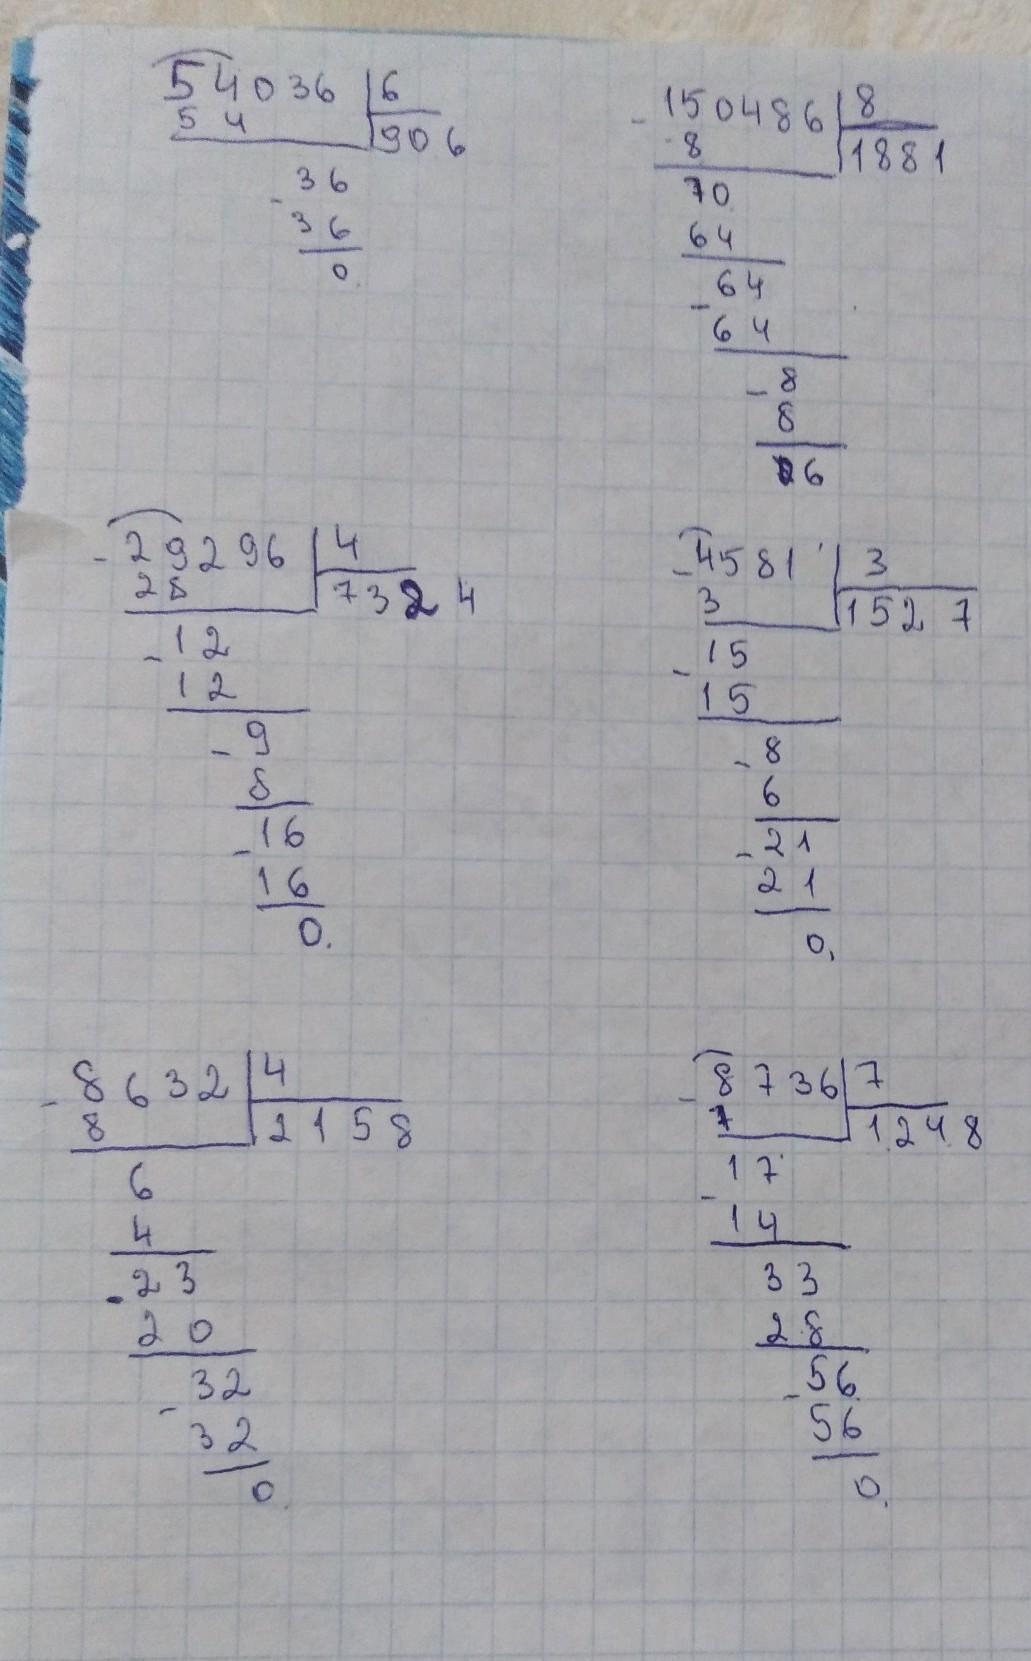 54036 6
54 906
- 36
36
0
- 150486 8
8 1881
70
64
- 64
64
- 8
8
06
- 29296 4
28 7324
- 12
12
- 9
8
- 16
16
0.
- 4581 3
3 1527
- 15
15
- 8
6
- 21
21
0.
- 8632 4
8 2158
6
4
- 23
20
- 32
32
0.
- 8736 7
7 1248
- 17
14
33
28
- 56
56
0.